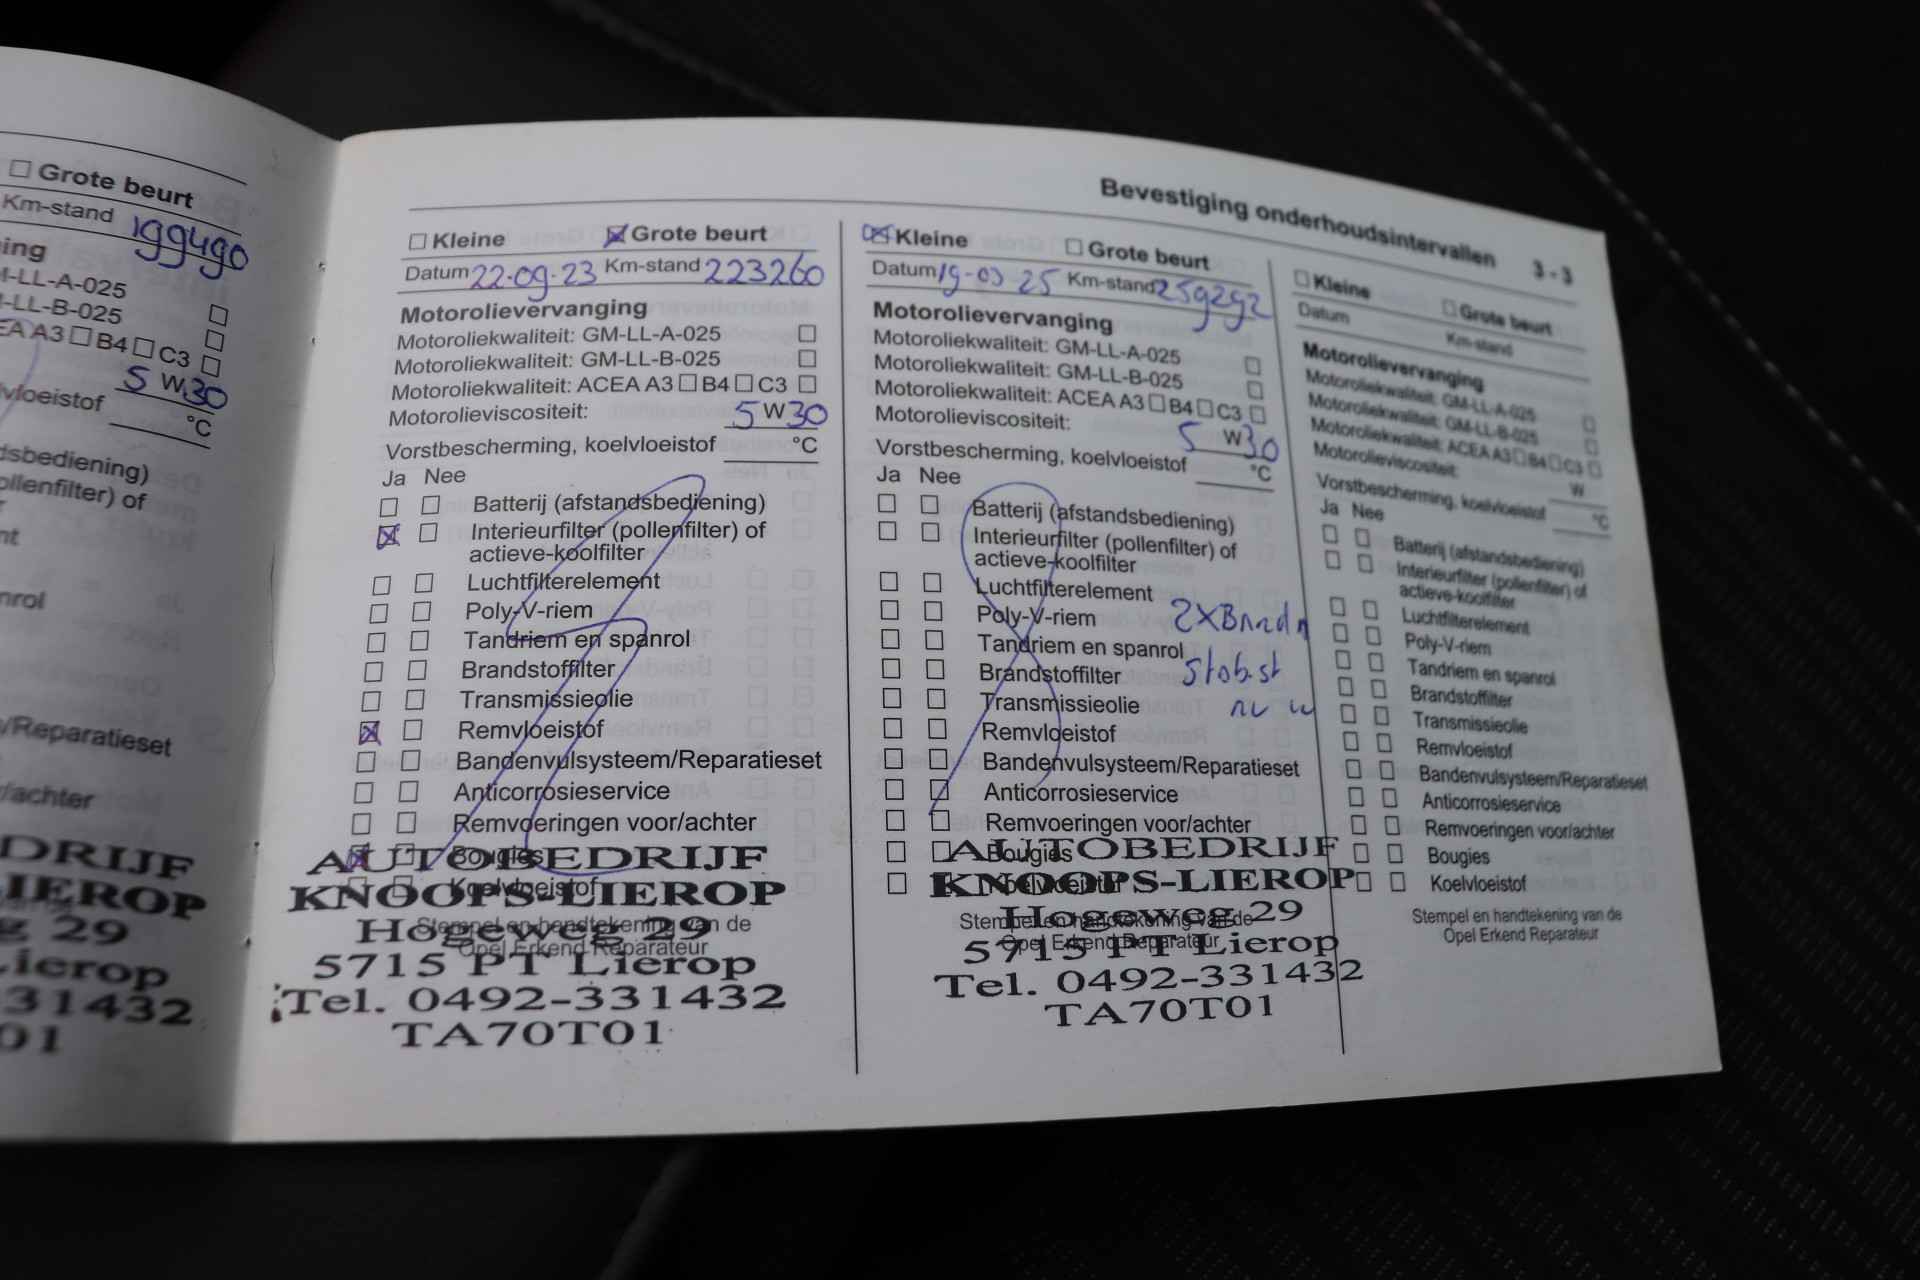 Grote beurt
Km-stand 199490
ing
-LL-A-025
-LL-B-025
EA A3 B4 C3
5 W 30
vloeistof °C
dsbediening)
ollenfilter) of
nt
nrol
/Reparatieset
/achter
DRIJF
LIEROP
g 29
Lierop
31432
01
Bevestiging onderhoudsintervallen 3 - 3
Kleine Grote beurt
Datum 22-09-23 Km-stand 223260
Motorolievervanging
Motoroliekwaliteit: GM-LL-A-025
Motoroliekwaliteit: GM-LL-B-025
Motoroliekwaliteit: ACEA A3 B4 C3
Motorolieviscositeit: 5 W 30
Vorstbescherming, koelvloeistof °C
Ja Nee
Batterij (afstandsbediening)
Interieurfilter (pollenfilter) of
actieve-koolfilter
Luchtfilterelement
Poly-V-riem
Tandriem en spanrol
Brandstoffilter
Transmissieolie
Remvloeistof
Bandenvulsysteem/Reparatieset
Anticorrosieservice
Remvoeringen voor/achter
Bougies
Koelvloeistof
Stempel en handtekening van de
Opel Erkend Reparateur
AUTOBEDRIJF
KNOOPS-LIEROP
Hogeweg 29
5715 PT Lierop
Tel. 0492-331432
TA70T01
Kleine Grote beurt
Datum 19-03-25 Km-stand 259292
Motorolievervanging
Motoroliekwaliteit: GM-LL-A-025
Motoroliekwaliteit: GM-LL-B-025
Motoroliekwaliteit: ACEA A3 B4 C3
Motorolieviscositeit: 5 W 30
Vorstbescherming, koelvloeistof °C
Ja Nee
Batterij (afstandsbediening)
Interieurfilter (pollenfilter) of
actieve-koolfilter
Luchtfilterelement
Poly-V-riem
Tandriem en spanrol
Brandstoffilter
Transmissieolie
Remvloeistof
Bandenvulsysteem/Reparatieset
Anticorrosieservice
Remvoeringen voor/achter
Bougies
Koelvloeistof
Stempel en handtekening van de
Opel Erkend Reparateur
AUTOBEDRIJF
KNOOPS-LIEROP
Hogeweg 29
5715 PT Lierop
Tel. 0492-331432
TA70T01
Kleine Grote beurt
Datum Km-stand
Motorolievervanging
Motoroliekwaliteit: GM-LL-A-025
Motoroliekwaliteit: GM-LL-B-025
Motoroliekwaliteit: ACEA A3 B4 C3
Motorolieviscositeit: W
Vorstbescherming, koelvloeistof °C
Ja Nee
Batterij (afstandsbediening)
Interieurfilter (pollenfilter) of
actieve-koolfilter
Luchtfilterelement
Poly-V-riem
Tandriem en spanrol
Brandstoffilter
Transmissieolie
Remvloeistof
Bandenvulsysteem/Reparatieset
Anticorrosieservice
Remvoeringen voor/achter
Bougies
Koelvloeistof
Stempel en handtekening van de
Opel Erkend Reparateur